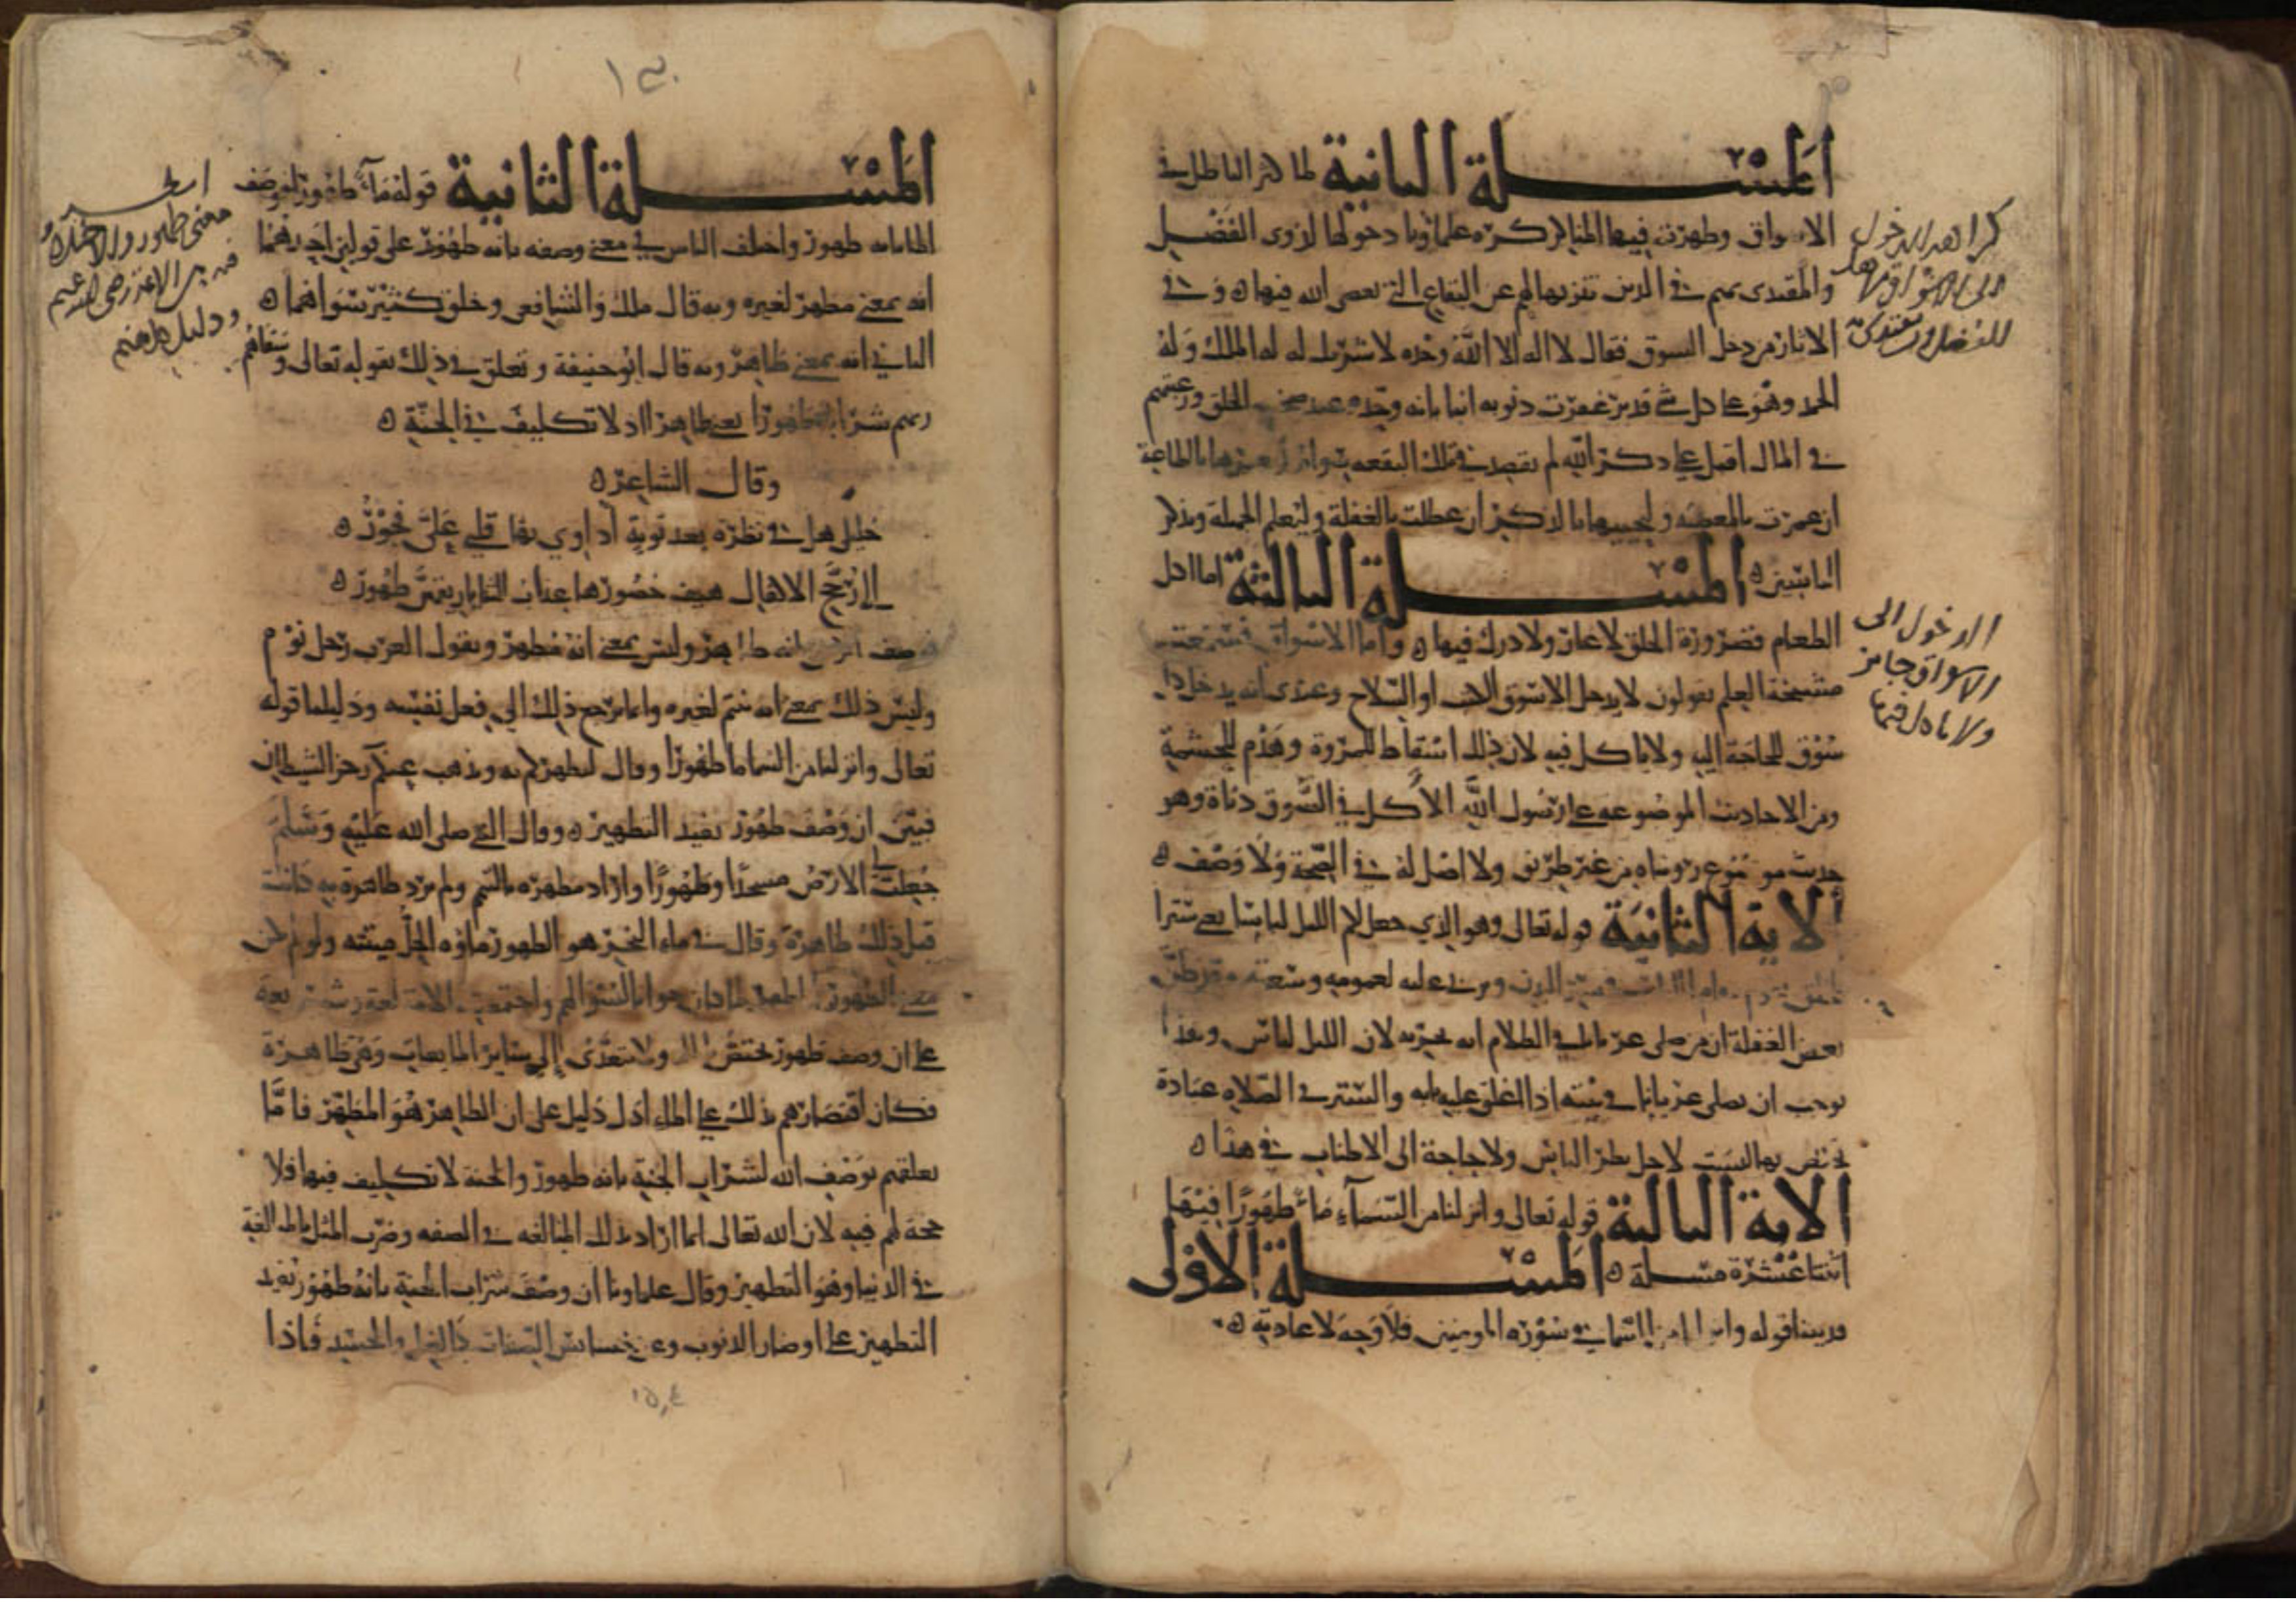 المسلة الثانية لما كثر الباطل في
الاسواق وظهرت فيها المناكر كره علماونا دخولها لذوي الفضل
والمقتدى بهم في الدين تنزيها لهم عن البقاع التي يعصى الله فيها وفي
الاثار من دخل السوق فقال لا اله الا الله وحده لا شريك له له الملك وله
الحمد وهو على كل شي قدير غفرت ذنوبه انبا بانه وحده عند صخب الخلق ورغبتهم
في المال اقبل على ذكر الله لم يقصد في تلك البقعة سواه ليعمرها بالطاعة
ان عمرت بالمعصية وليحييها بالذكر ان عطلت بالغفلة وليعلم الجهلة ويذكر
الناسين المسلة الثالثة اما اكل
الطعام فضرورة الخلق لا عار ولا درك فيها واما الاسواق فسمعت
مشيخة العلم يقولون لا يدخل الا سوق الكتب او السلاح وعندي انه يدخل كل
سوق للحاجة اليه ولا ياكل فيه لان ذلك اسقاط للمروة وهدم للحشمة
ومن الاحاديث الموضوعة على رسول الله الاكل في السوق دناة وهو
حديث موضوع رويناه من غير طريق ولا اصل له في الصحة ولا وصف
الاية الثانية قوله تعالى وهو الذي جعل لكم الليل لباسا يعني سترا
للخلق يقوم مقام اللباس في ستر البدن ويربي عليه لعمومه وسعته وقد ظن
بعض الغفلة ان من صلى عريانا في الظلام انه يجزيه لان الليل لباس وهذا
يوجب ان يصلي عريانا في بيته اذا اغلق عليه بابه والستر في الصلاة عبادة
تختص بها ليست لاجل نظر الناس ولا حاجة الى الاطناب في هذا
الاية الثالثة قوله تعالى وانزلنا من السماء ماء طهورا فيها
اثنتا عشرة مسلة المسلة الاولى
قد بينا قوله وانزلنا من السما في سورة المومنين فلا وجه لاعادته
كراهة الدخول
الى الاسواق
الدخول الى
الاسواق جايز
ولا ياكل فيها
المسلة الثانية قوله ماء طهورا فوصف
الما بانه طهور واختلف الناس في معنى وصفه بانه طهور على قولين احدهما
انه بمعنى مطهر لغيره وبه قال ملك والشافعي وخلق كثير سواهما
الثاني انه بمعنى طاهر وبه قال ابو حنيفة وتعلق في ذلك بقوله تعالى وسقاهم
ربهم شرابا طهورا يعني طاهرا اذ لا تكليف في الجنة
وقال الشاعر
خليلي هل في نظرة بعد توبة اداوي بها قلبي علي فجور
الى رجح الاكفال هيف خصورها عذاب الثنايا ريقهن طهور
فوصف الريق بانه طاهر وليس بمعنى انه مطهر ويقول العرب رجل نووم
وليس ذلك بمعنى انه منيم لغيره وانما يرجع ذلك الى فعل نفسه ودليلنا قوله
تعالى وانزلنا من السما ما طهورا وقال ليطهركم به ويذهب عنكم رجز الشيطان
فبين ان وصف طهور يفيد التطهير وقال النبي صلى الله عليه وسلم
جعلت لي الارض مسجدا وطهورا واراد مطهرة بالتيمم ولم يرد طاهرة به كانت
قبل ذلك طاهرة وقال في ماء البحر هو الطهور ماؤه الحل ميتته ولو لم يكن
معنى الطهور المطهر لما كان جوابا لسوالهم واجتمعت الامة لغة وشريعة
على ان وصف طهور يختص بالما ولا يتعدى الى ساير المايعات وهي طاهرة
فكان اقتصارهم بذلك على الماء ادل دليل على ان الطاهر هو المطهر فاما
تعلقهم بوصف الله لشراب الجنة بانه طهور والجنة لا تكليف فيها فلا
حجة لهم فيه لان الله تعالى انما اراد بذلك المبالغة في الصفة وضرب المثل بالمبالغة
في الدنيا وهو التطهير وقال علماونا ان وصف شراب الجنة بانه طهور يفيد
التطهير عن اوضار الذنوب وعن خسايس الصفات كالغل والحسد فاذا
معنى طهور والاختلاف
فيه بين الائمة رضي الله عنهم
ودليل كل منهم